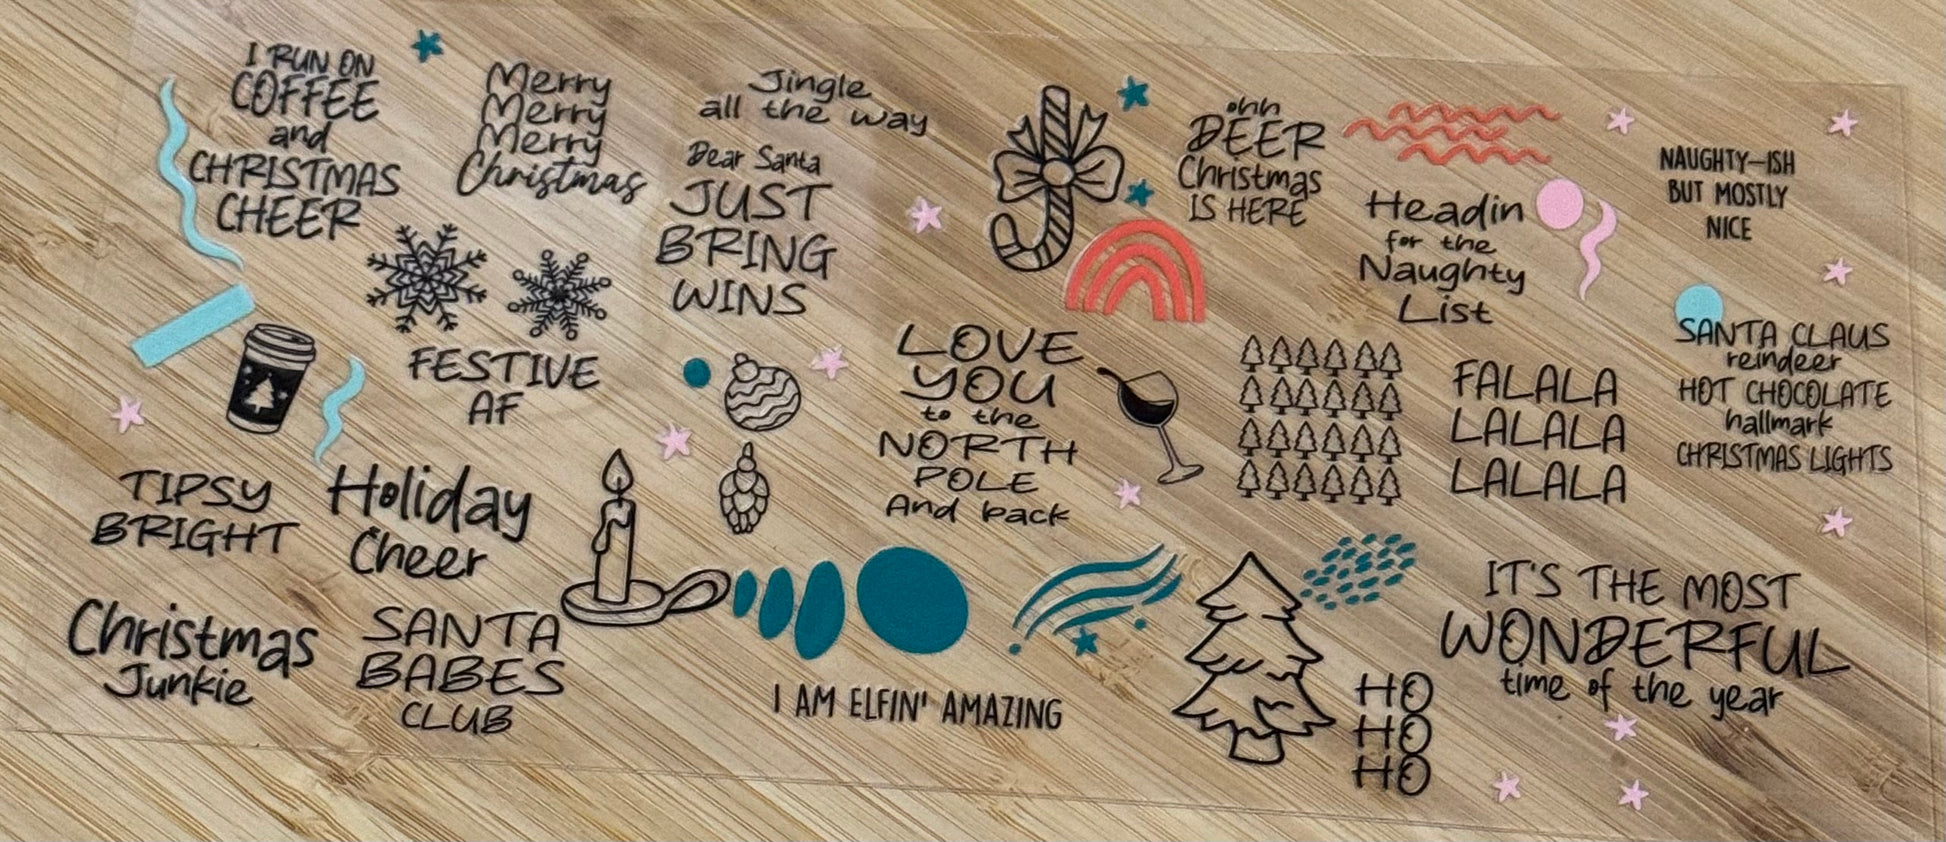 I RUN ON
COFFEE
and
CHRISTMAS
CHEER
Merry
Merry
Merry
Christmas
Jingle
all the way
Dear Santa
JUST
BRING
WINS
ohh
DEER
Christmas
IS HERE
Headin
for the
Naughty
List
NAUGHTY-ISH
BUT MOSTLY
NICE
FESTIVE
AF
LOVE
YOU
to the
NORTH
POLE
And back
FALALA
LALALA
LALALA
SANTA CLAUS
reindeer
HOT CHOCOLATE
hallmark
CHRISTMAS LIGHTS
TIPSY
BRIGHT
Holiday
Cheer
Christmas
Junkie
SANTA
BABES
CLUB
I AM ELFIN' AMAZING
HO
HO
HO
IT'S THE MOST
WONDERFUL
time of the year